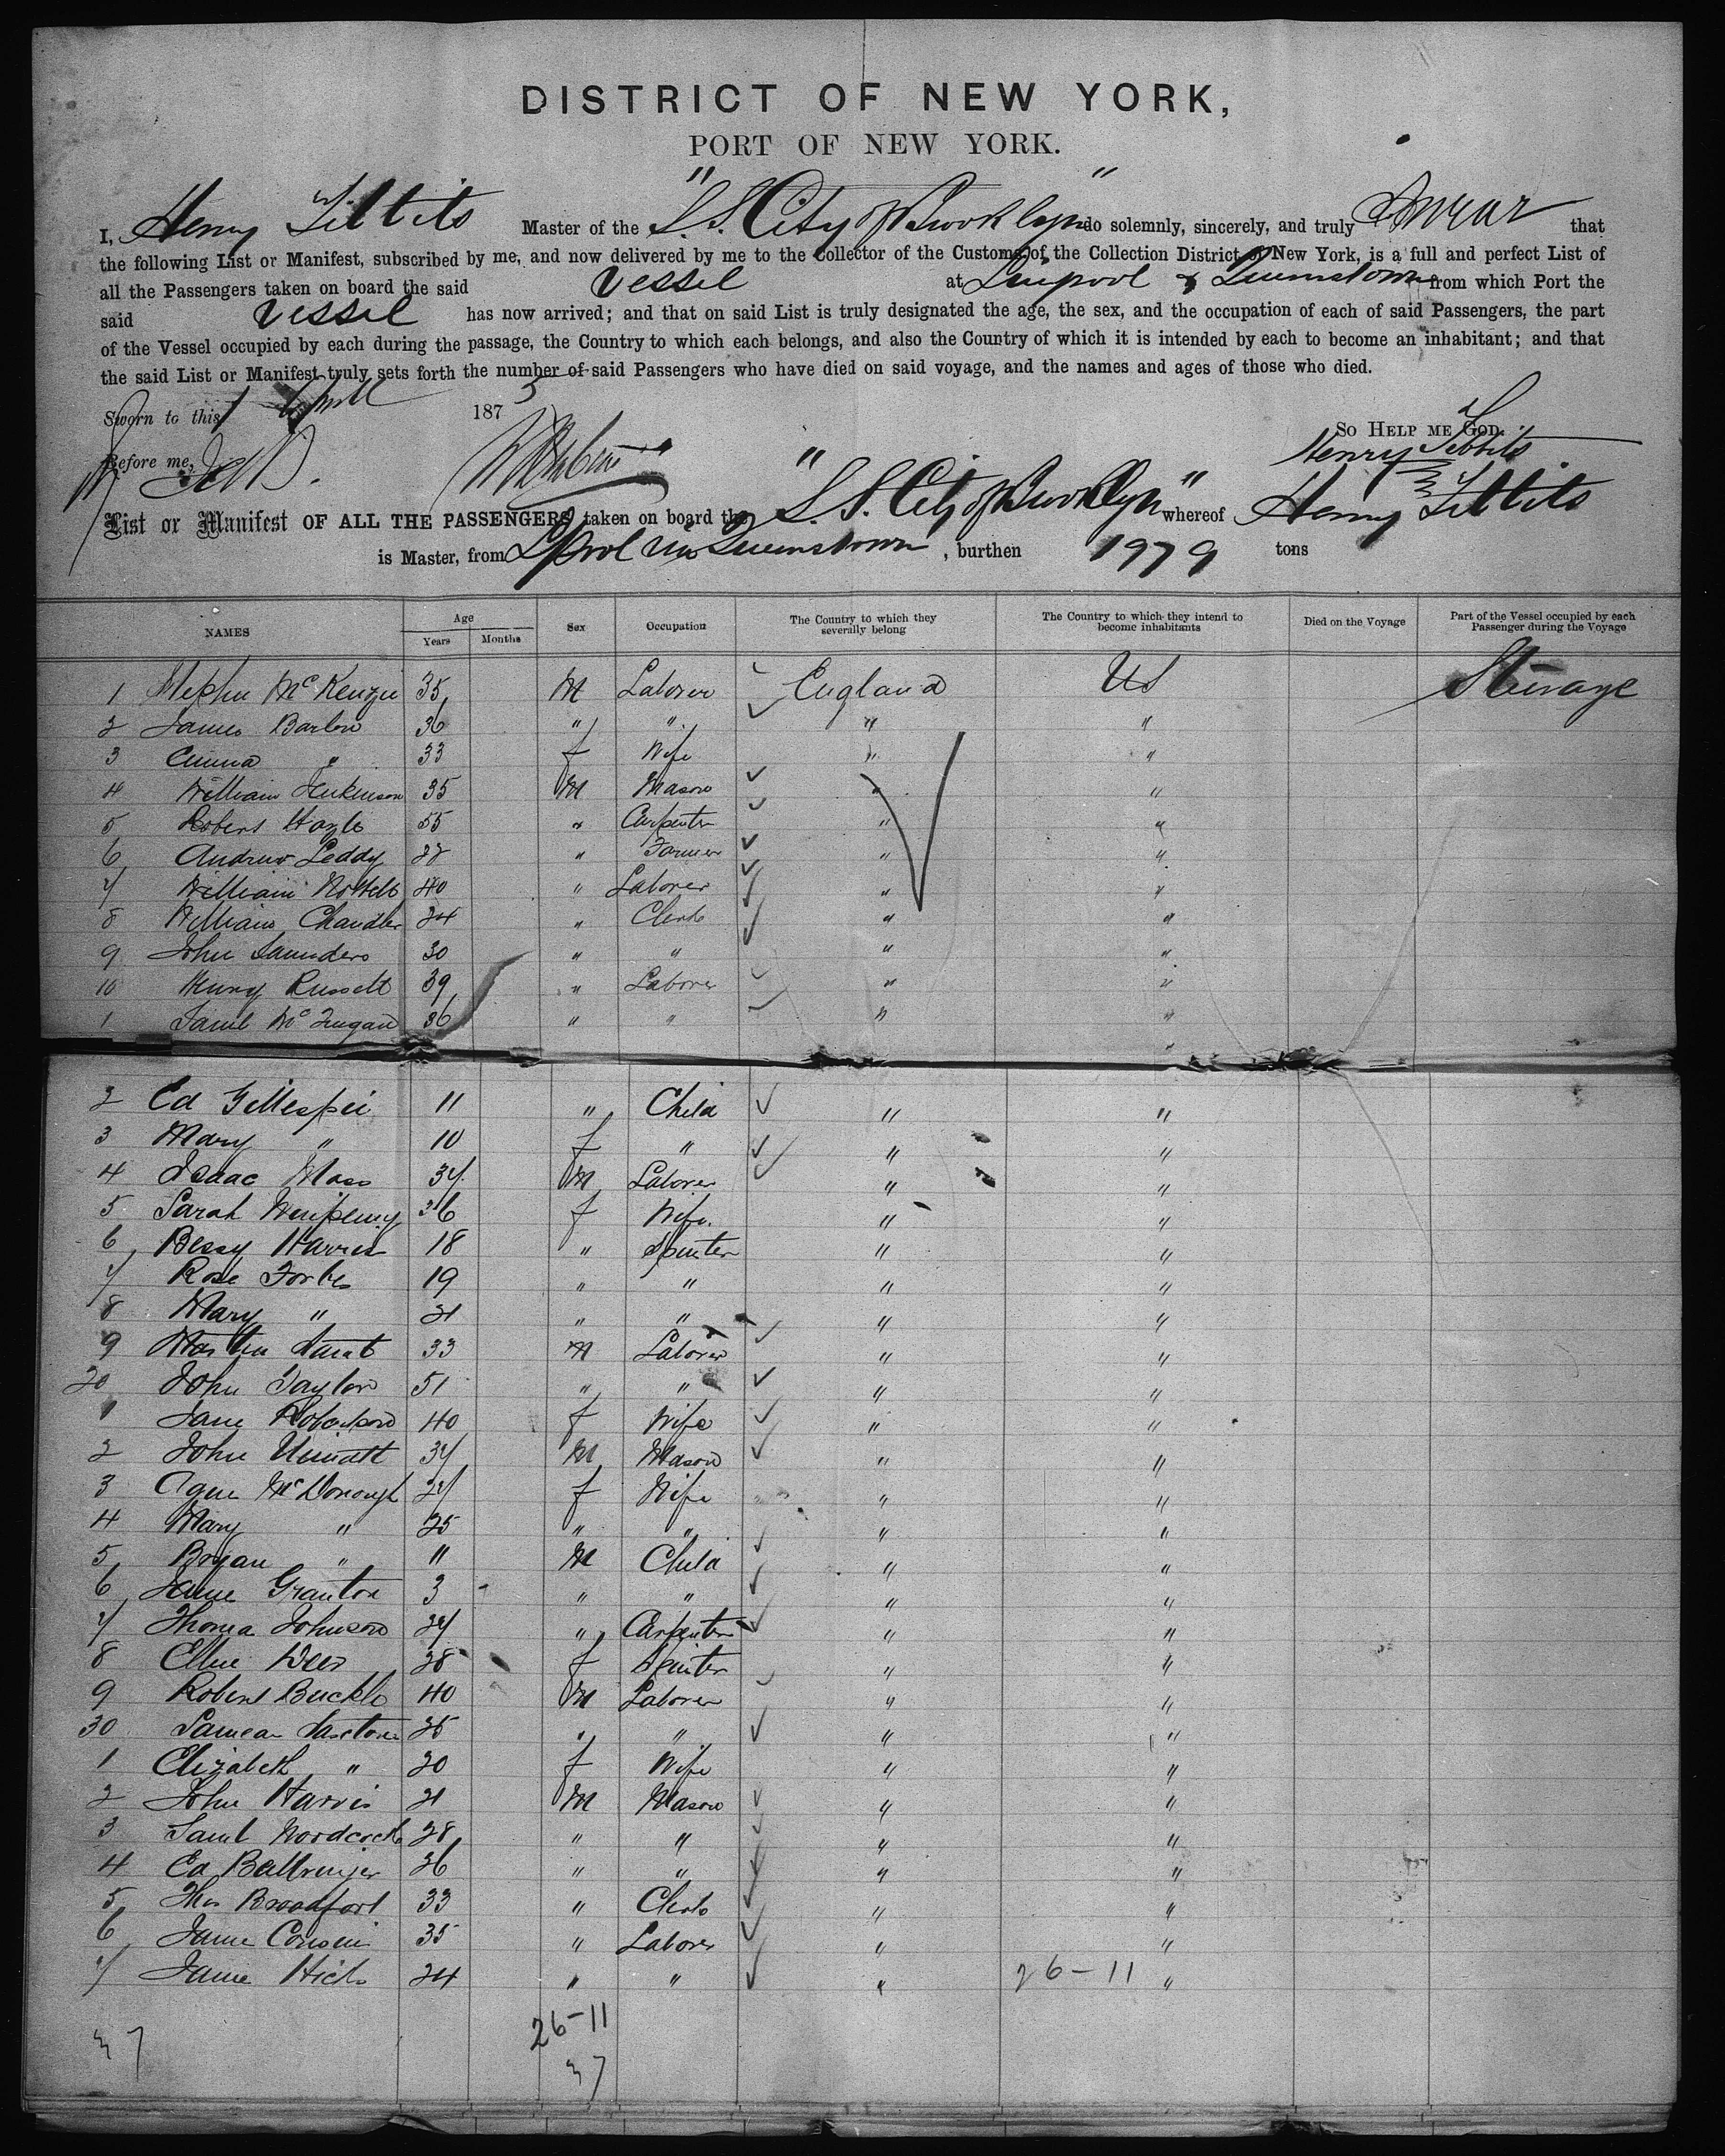 DISTRICT OF NEW YORK,
PORT OF NEW YORK.
I, Henry Tibbits Master of the "S.S. City of Brooklyn" do solemnly, sincerely, and truly swear that
the following List or Manifest, subscribed by me, and now delivered by me to the Collector of the Customs of the Collection District of New York, is a full and perfect List of
all the Passengers taken on board the said Vessel at Liverpool & Queenstown from which Port the
said Vessel has now arrived; and that on said List is truly designated the age, the sex, and the occupation of each of said Passengers, the part
of the Vessel occupied by each during the passage, the Country to which each belongs, and also the Country of which it is intended by each to become an inhabitant; and that
the said List or Manifest truly sets forth the number of said Passengers who have died on said voyage, and the names and ages of those who died.
Sworn to this 1 April 1875 So Help me God.
Before me, Henry Tibbits
List or Manifest OF ALL THE PASSENGERS taken on board the "S.S. City of Brooklyn" whereof Henry Tibbits
is Master, from L'pool via Queenstown, burthen 1979 tons
NAMES Age Years Months Sex Occupation The Country to which they severally belong The Country to which they intend to become inhabitants Died on the Voyage Part of the Vessel occupied by each Passenger during the Voyage
1 Stephen McKenzie 35 M Laborer England US Steerage
2 James Barlow 36 " " " "
3 Emma " 33 f Wife " "
4 William Jenkinson 35 M Mason " "
5 Robert Hoyle 55 " Carpenter " "
6 Andrew Leddy 28 " Farmer " "
7 William 40 " Laborer " "
8 William Chandler 24 " Clerk " "
9 John Saunders 30 " " " "
10 Henry Russell 39 " Laborer " "
1 Saml Mc 36 " " " "
"
2 Ed Gillespie 11 " Child " "
3 Mary " 10 f " " "
4 Isaac Moss 37 M Laborer " "
5 Sarah 36 f Wife " "
6 Bessy Harris 18 " Spinster " "
7 Rose Forbes 19 " " " "
8 Mary " 21 " " " "
9 Martin 33 M Laborer " "
20 John Taylor 51 " " " "
1 Jane Robertson 40 f Wife " "
2 John 37 M Mason " "
3 Agnes McDonough 27 f Wife " "
4 Mary " 25 " " " "
5 Bryan " 11 M Child " "
6 Jane Granton 3 " " " "
7 Thomas Johnson 27 " Carpenter " "
8 Ellen 28 f Spinster " "
9 Robert Buckle 40 M Laborer " "
30 25 " " " "
1 Elizabeth " 20 f Wife " "
2 John Harris 21 M Mason " "
3 Saml Woodcock 28 " " " "
4 Ed Ballringer 26 " " " "
5 Thos Broadfort 33 " Clerk " "
6 James 35 " Laborer " "
7 James Hicks 24 " " " 26-11 "
37 26-11
37